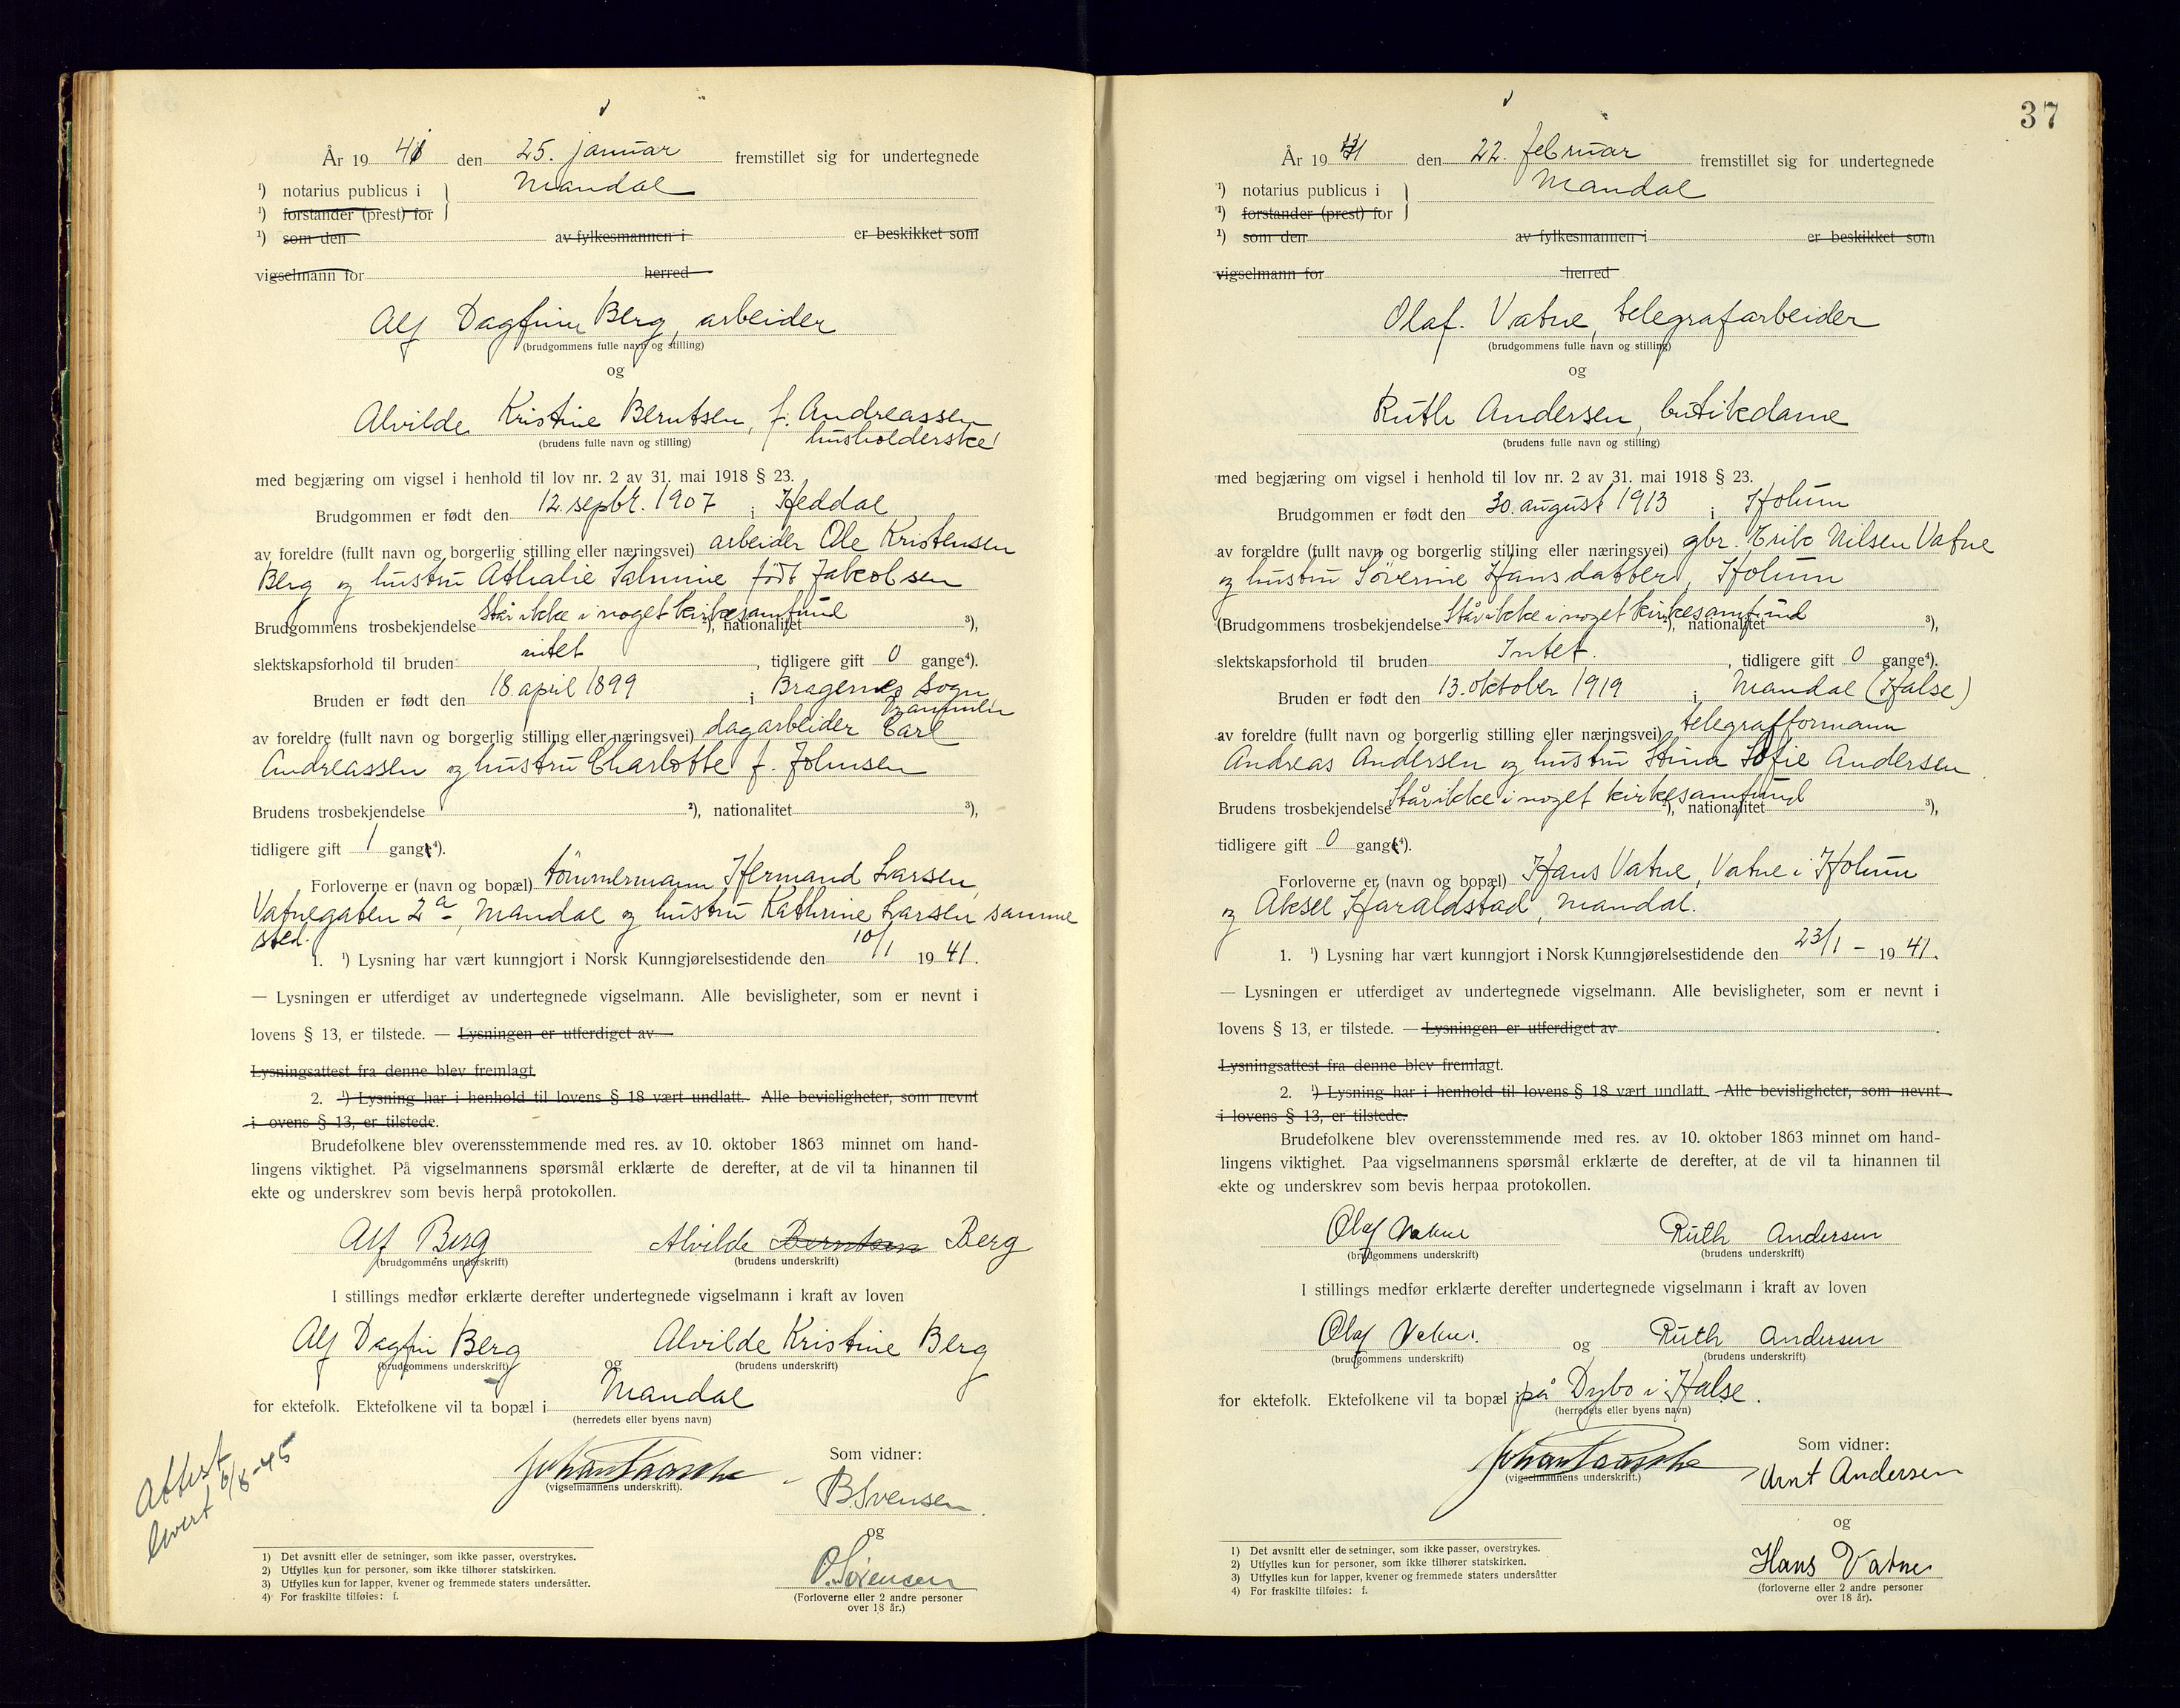 År 19 41 den 25. januar fremstillet sig for undertegnede
¹) notarius publicus i } Mandal
¹) forstander (prest) for
¹) som den av fylkesmannen i er beskikket som
vigselmann for herred
Alf Dagfinn Berg, arbeider
(brudgommens fulle navn og stilling)
og
Alvilde Kristine Berntsen, f. Andreassen
husholderske
(brudens fulle navn og stilling)
med begjæring om vigsel i henhold til lov nr. 2 av 31. mai 1918 § 23.
Brudgommen er født den 12. septbr. 1907 i Heddal
av foreldre (fullt navn og borgerlig stilling eller næringsvei) arbeider Ole Kristensen
Berg og hustru Athalie Salmine født Jakobsen
Brudgommens trosbekjendelse Står ikke i noget kirkesamfund ²), nationalitet ³),
slektskapsforhold til bruden intet, tidligere gift 0 gange⁴).
Bruden er født den 18. april 1899 i Bragernes Sogn
Drammen
av foreldre (fullt navn og borgerlig stilling eller næringsvei) dagarbeider Carl
Andreassen og hustru Charlotte f. Johnsen
Brudens trosbekjendelse ²), nationalitet ³),
tidligere gift 1 gange⁴).
Forloverne er (navn og bopæl) tømmermann Hermand Larsen,
Vatnegaten 2a, Mandal og hustru Kathrine Larsen samme
sted.
1. ¹) Lysning har vært kunngjort i Norsk Kunngjørelsestidende den 10/1 19 41.
— Lysningen er utferdiget av undertegnede vigselmann. Alle bevisligheter, som er nevnt i
lovens § 13, er tilstede. — Lysningen er utferdiget av
Lysningsattest fra denne blev fremlagt
2. ¹) Lysning har i henhold til lovens § 18 vært undlatt. Alle bevisligheter, som nevnt
i ovens § 13, er tilstede.
Brudefolkene blev overensstemmende med res. av 10. oktober 1863 minnet om hand-
lingens viktighet. På vigselmannens spørsmål erklærte de derefter, at de vil ta hinannen til
ekte og underskrev som bevis herpå protokollen.
Alf Berg Alvilde Berntsen Berg
(brudgommens underskrift) (brudens underskrift)
I stillings medfør erklærte derefter undertegnede vigselmann i kraft av loven
Alf Dagfin Berg og Alvilde Kristine Berg
(brudgommens underskrift) (brudens underskrift)
for ektefolk. Ektefolkene vil ta bopæl i Mandal
(herredets eller byens navn)
Attest
levert 6/8-45
Som vidner:
Johan Paasche
(vigselmannens underskrift).
B. Svensen
og
O. Sørensen
(Forloverne eller 2 andre personer
over 18 år.)
1) Det avsnitt eller de setninger, som ikke passer, overstrykes.
2) Utfylles kun for personer, som ikke tilhører statskirken.
3) Utfylles kun for lapper, kvener og fremmede staters undersåtter.
4) For fraskilte tilføies: f.
37
År 19 41 den 22. februar fremstillet sig for undertegnede
¹) notarius publicus i } Mandal
¹) forstander (prest) for
¹) som den av fylkesmannen i er beskikket som
vigselmann for herred
Olaf Vatne, telegrafarbeider
(brudgommens fulle navn og stilling)
og
Ruth Andersen, butikdame
(brudens fulle navn og stilling)
med begjæring om vigsel i henhold til lov nr. 2 av 31. mai 1918 § 23.
Brudgommen er født den 30. august 1913 i Holum
av forældre (fullt navn og borgerlig stilling eller næringsvei) gbr. Erik Nilsen Vatne
og hustru Søverine Hansdatter, Holum
(Brudgommens trosbekjendelse Står ikke i noget kirkesamfund ²), nationalitet ³),
slektskapsforhold til bruden Intet., tidligere gift 0 gange⁴).
Bruden er født den 13. oktober 1919 i Mandal (Halse)
av foreldre (fullt navn og borgerlig stilling eller næringsvei) telegrafformann
Andreas Andersen og hustru Stina Sofie Andersen
Brudens trosbekjendelse Står ikke i noget kirkesamfund ²), nationalitet ³),
tidligere gift 0 gange⁴).
Forloverne er (navn og bopæl) Hans Vatne, Vatne i Holum
og Aksel Haraldstad, Mandal.
1. ¹) Lysning har vært kunngjort i Norsk Kunngjørelsestidende den 23/1 - 19 41.
— Lysningen er utferdiget av undertegnede vigselmann. Alle bevisligheter, som er nevnt i
lovens § 13, er tilstede. — Lysningen er utferdiget av .
Lysningsattest fra denne blev fremlagt.
2. ¹) Lysning har i henhold til lovens § 18 vært undlatt. Alle bevisligheter, som nevnt
i lovens § 13, er tilstede.
Brudefolkene blev overensstemmende med res. av 10. oktober 1863 minnet om hand-
lingens viktighet. Paa vigselmannens spørsmål erklærte de derefter, at de vil ta hinannen til
ekte og underskrev som bevis herpaa protokollen.
Olaf Vatne Ruth Andersen
(brudgommens underskrift) (brudens underskrift)
I stillings medfør erklærte derefter undertegnede vigselmann i kraft av loven
Olaf Vatne. og Ruth Andersen
(brudgommens underskrift) (brudens underskrift)
for ektefolk. Ektefolkene vil ta bopæl i på Dybo i Halse.
(herredets eller byens navn)
Som vidner:
Johan Paasche
(vigselmannens underskrift.)
Arnt Andersen
og
Hans Vatne
(forloverne eller 2 andre personer
over 18 år).
1) Det avsnitt eller de setninger, som ikke passer, overstrykes.
2) Utfylles kun for personer, som ikke tilhører statskirken.
3) Utfylles kun for lapper, kvener og fremmede staters undersåtter
4) For fraskilte tilføies: f.